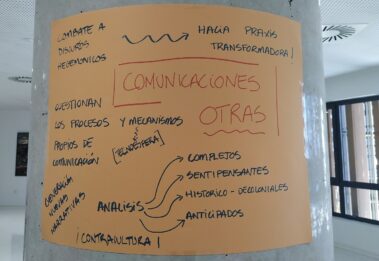 COMBATE A
DISCURSOS
HEGEMONICOS
HACIA PRAXIS
TRANSFORMADORA!
COMUNICACIONES
OTRAS
CUESTIONAN
LOS PROCESOS Y MECANISMOS
PROPIOS DE
COMUNICACIÓN
[TECNOESFERA]
GENERACIÓN
NUEVAS
NARRATIVAS
ANALISIS
COMPLEJOS
SENTIPENSANTES
HISTORICO-DECOLONIALES
ANTICIPADOS
¡CONTRACULTURA!